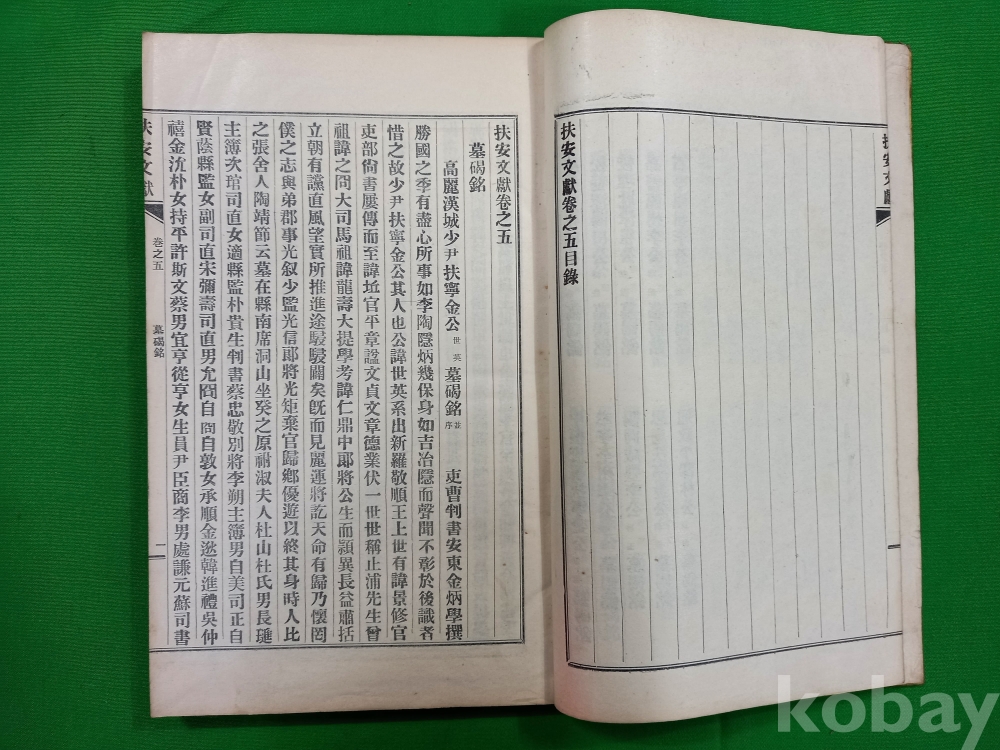 扶安文獻
扶安文獻卷之五目錄
扶安文獻卷之五
墓碣銘
高麗漢城少尹扶寧金公世英墓碣銘並序 吏曹判書安東金炳學撰
勝國之季有盡心所事如李陶隱炳幾保身如吉冶隱而聲聞不彰於後識者
惜之故少尹扶寧金公其人也公諱世英系出新羅敬順王上世有諱景修官
吏部尙書屢傳而至諱坵官平章諡文貞文章德業伏一世世稱止浦先生曾
祖諱之冏大司馬祖諱龍壽大提學考諱仁鼎中郞將公生而穎異長益肅括
立朝有讜直風望實所推進途駸駸闢矣旣而見麗運將訖天命有歸乃懷罔
僕之志與弟郡事光叙少監光信郞將光矩棄官歸鄕優遊以終其身時人比
之張舍人陶靖節云墓在縣南席洞山坐癸之原祔淑夫人杜山杜氏男長璡
主簿次琯司直女適縣監朴貴生判書蔡忠敬別將李朔主簿男自美司正自
賢蔭縣監女副司直宋彌壽司直男允冏自冏自敦女承順金逖韓進禮吳仲
禧金沇朴女持平許斯文蔡男宜亨從亨女生員尹臣商李男處謙元蘇司書
扶安文獻
卷之五
墓碣銘
一
kobay